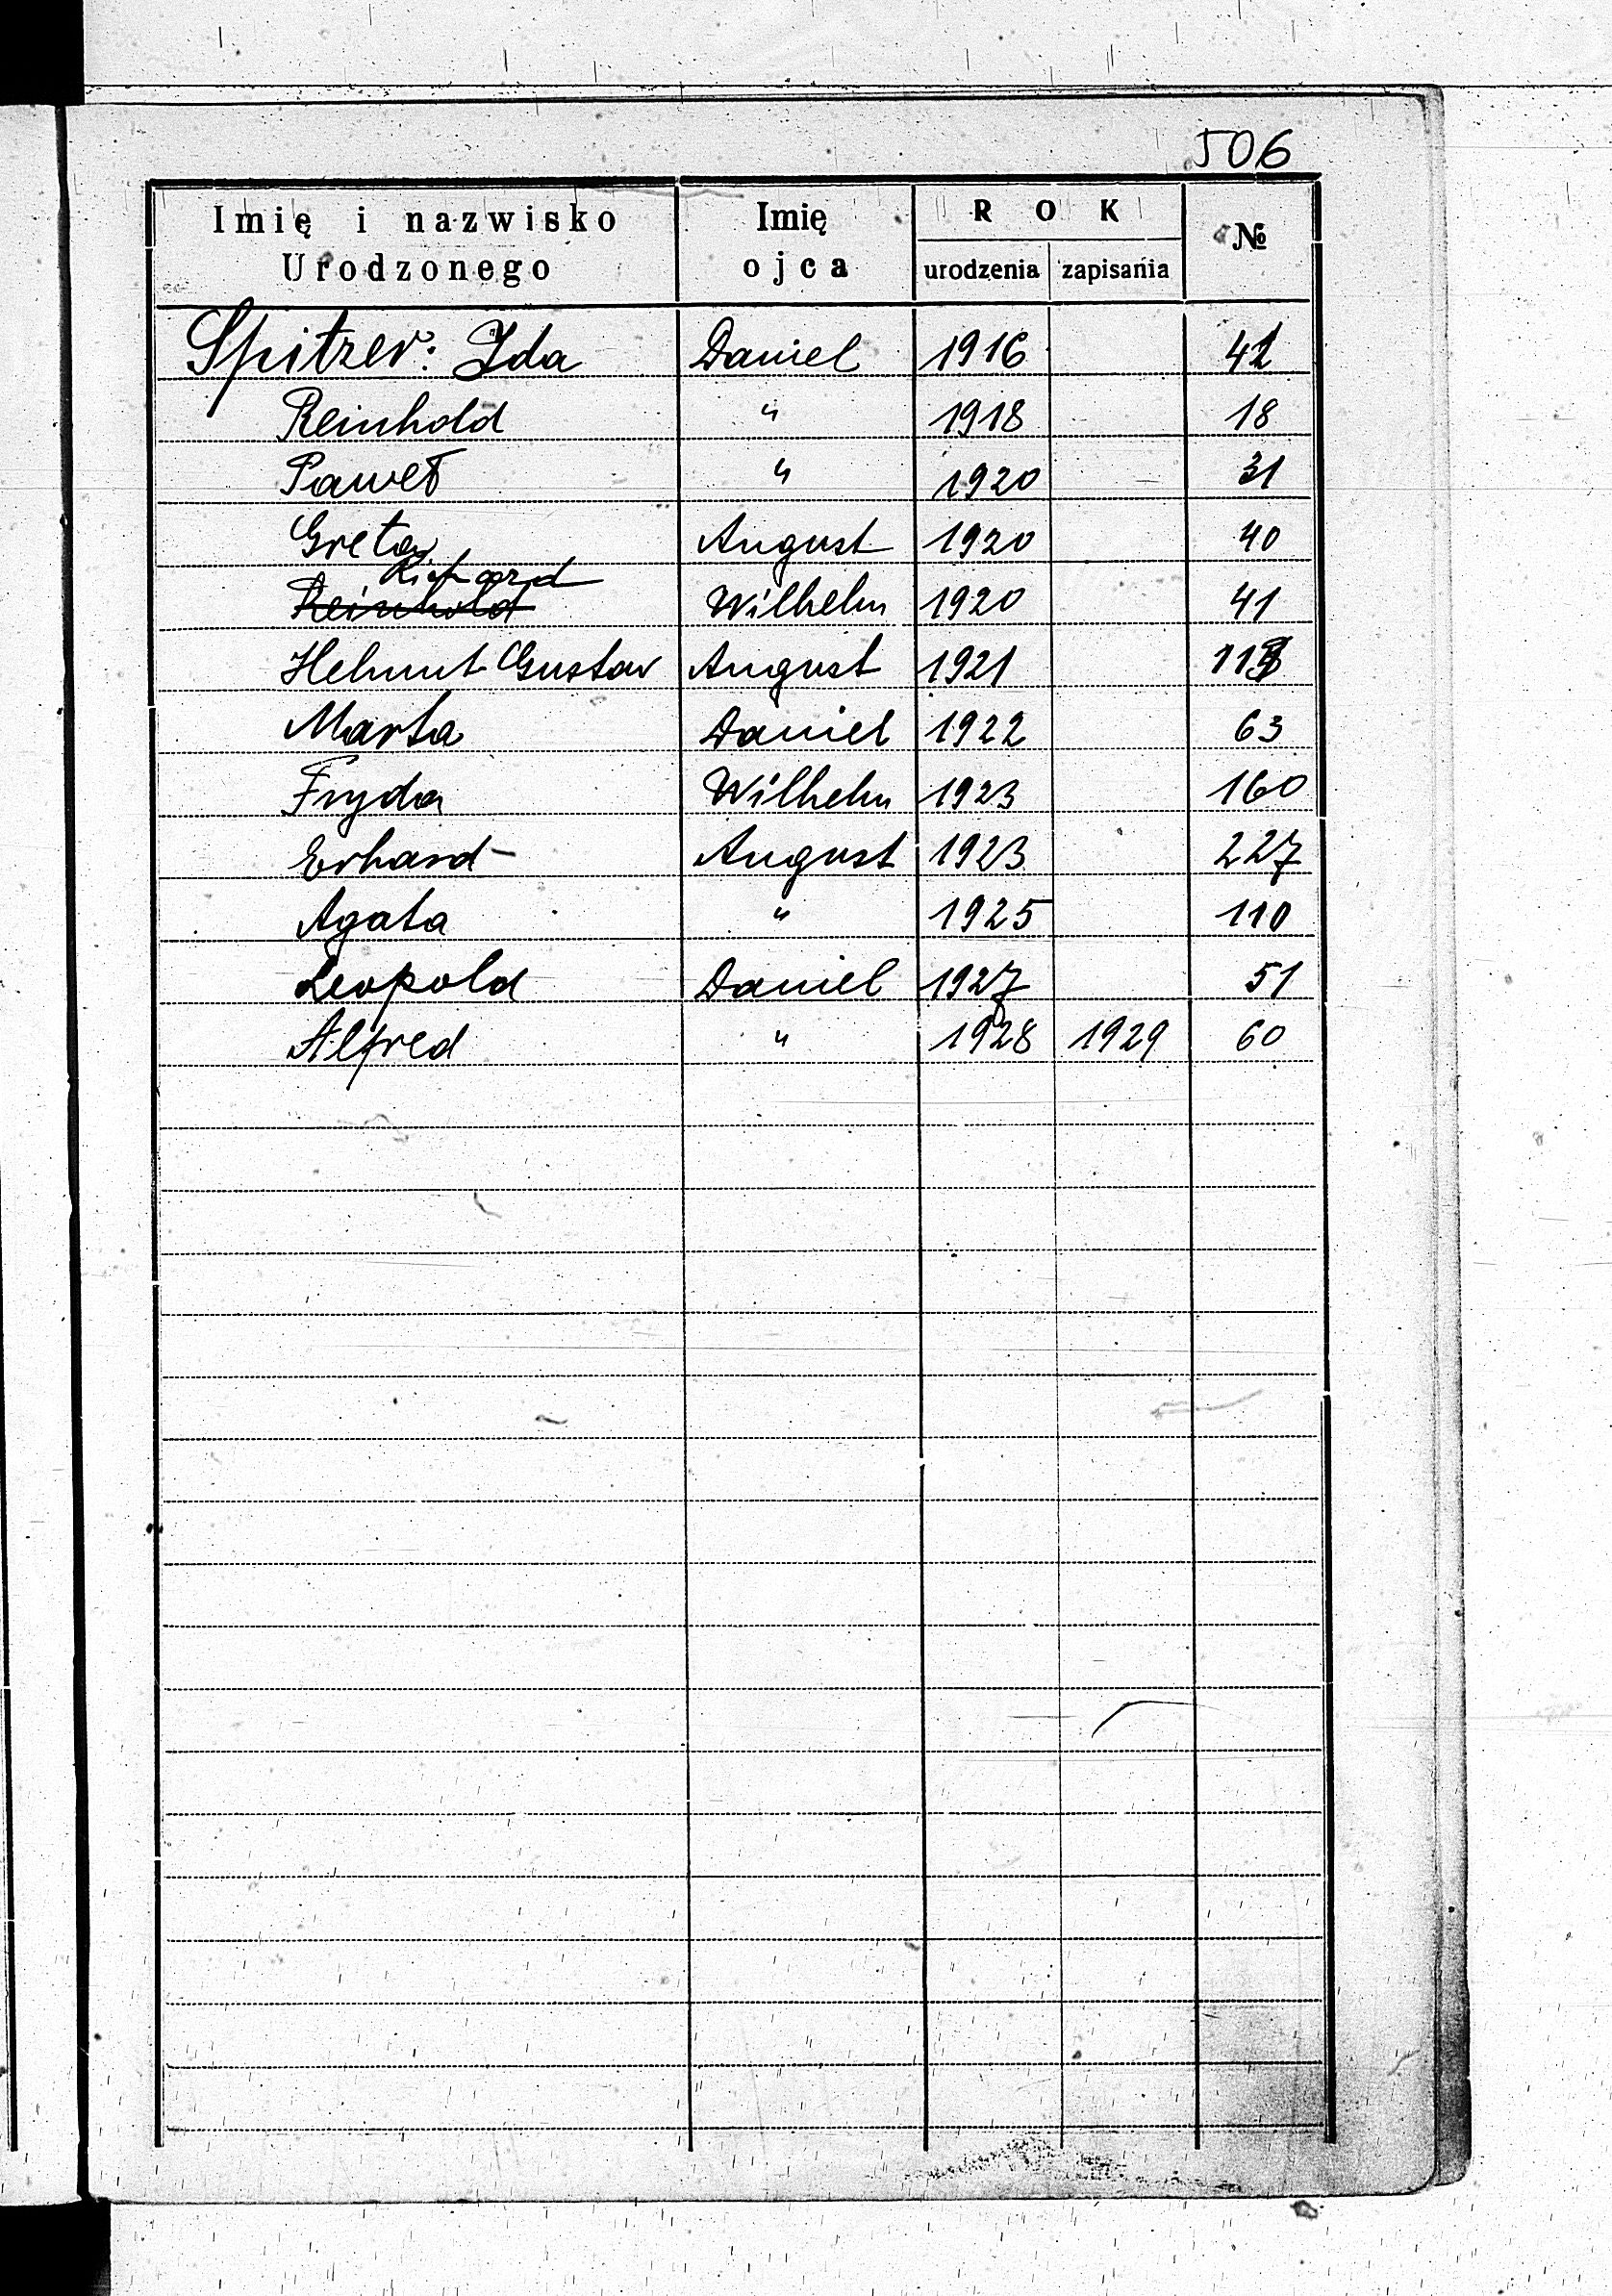 506
Imię i nazwisko Urodzonego | Imię ojca | ROK urodzenia | ROK zapisania | №
Spitzer: Ida | Daniel | 1916 | | 42
Reinhold | " | 1918 | | 18
Paweł | " | 1920 | | 31
Greta | August | 1920 | | 40
Richard
Reinhold | Wilhelm | 1920 | | 41
Helmut Gustav | August | 1921 | |
Marta | Daniel | 1922 | | 63
Fryda | Wilhelm | 1923 | | 160
Erhard | August | 1923 | | 227
Agata | " | 1925 | | 110
Leopold | Daniel | 1927 | | 51
Alfred | " | 1928 | 1929 | 60